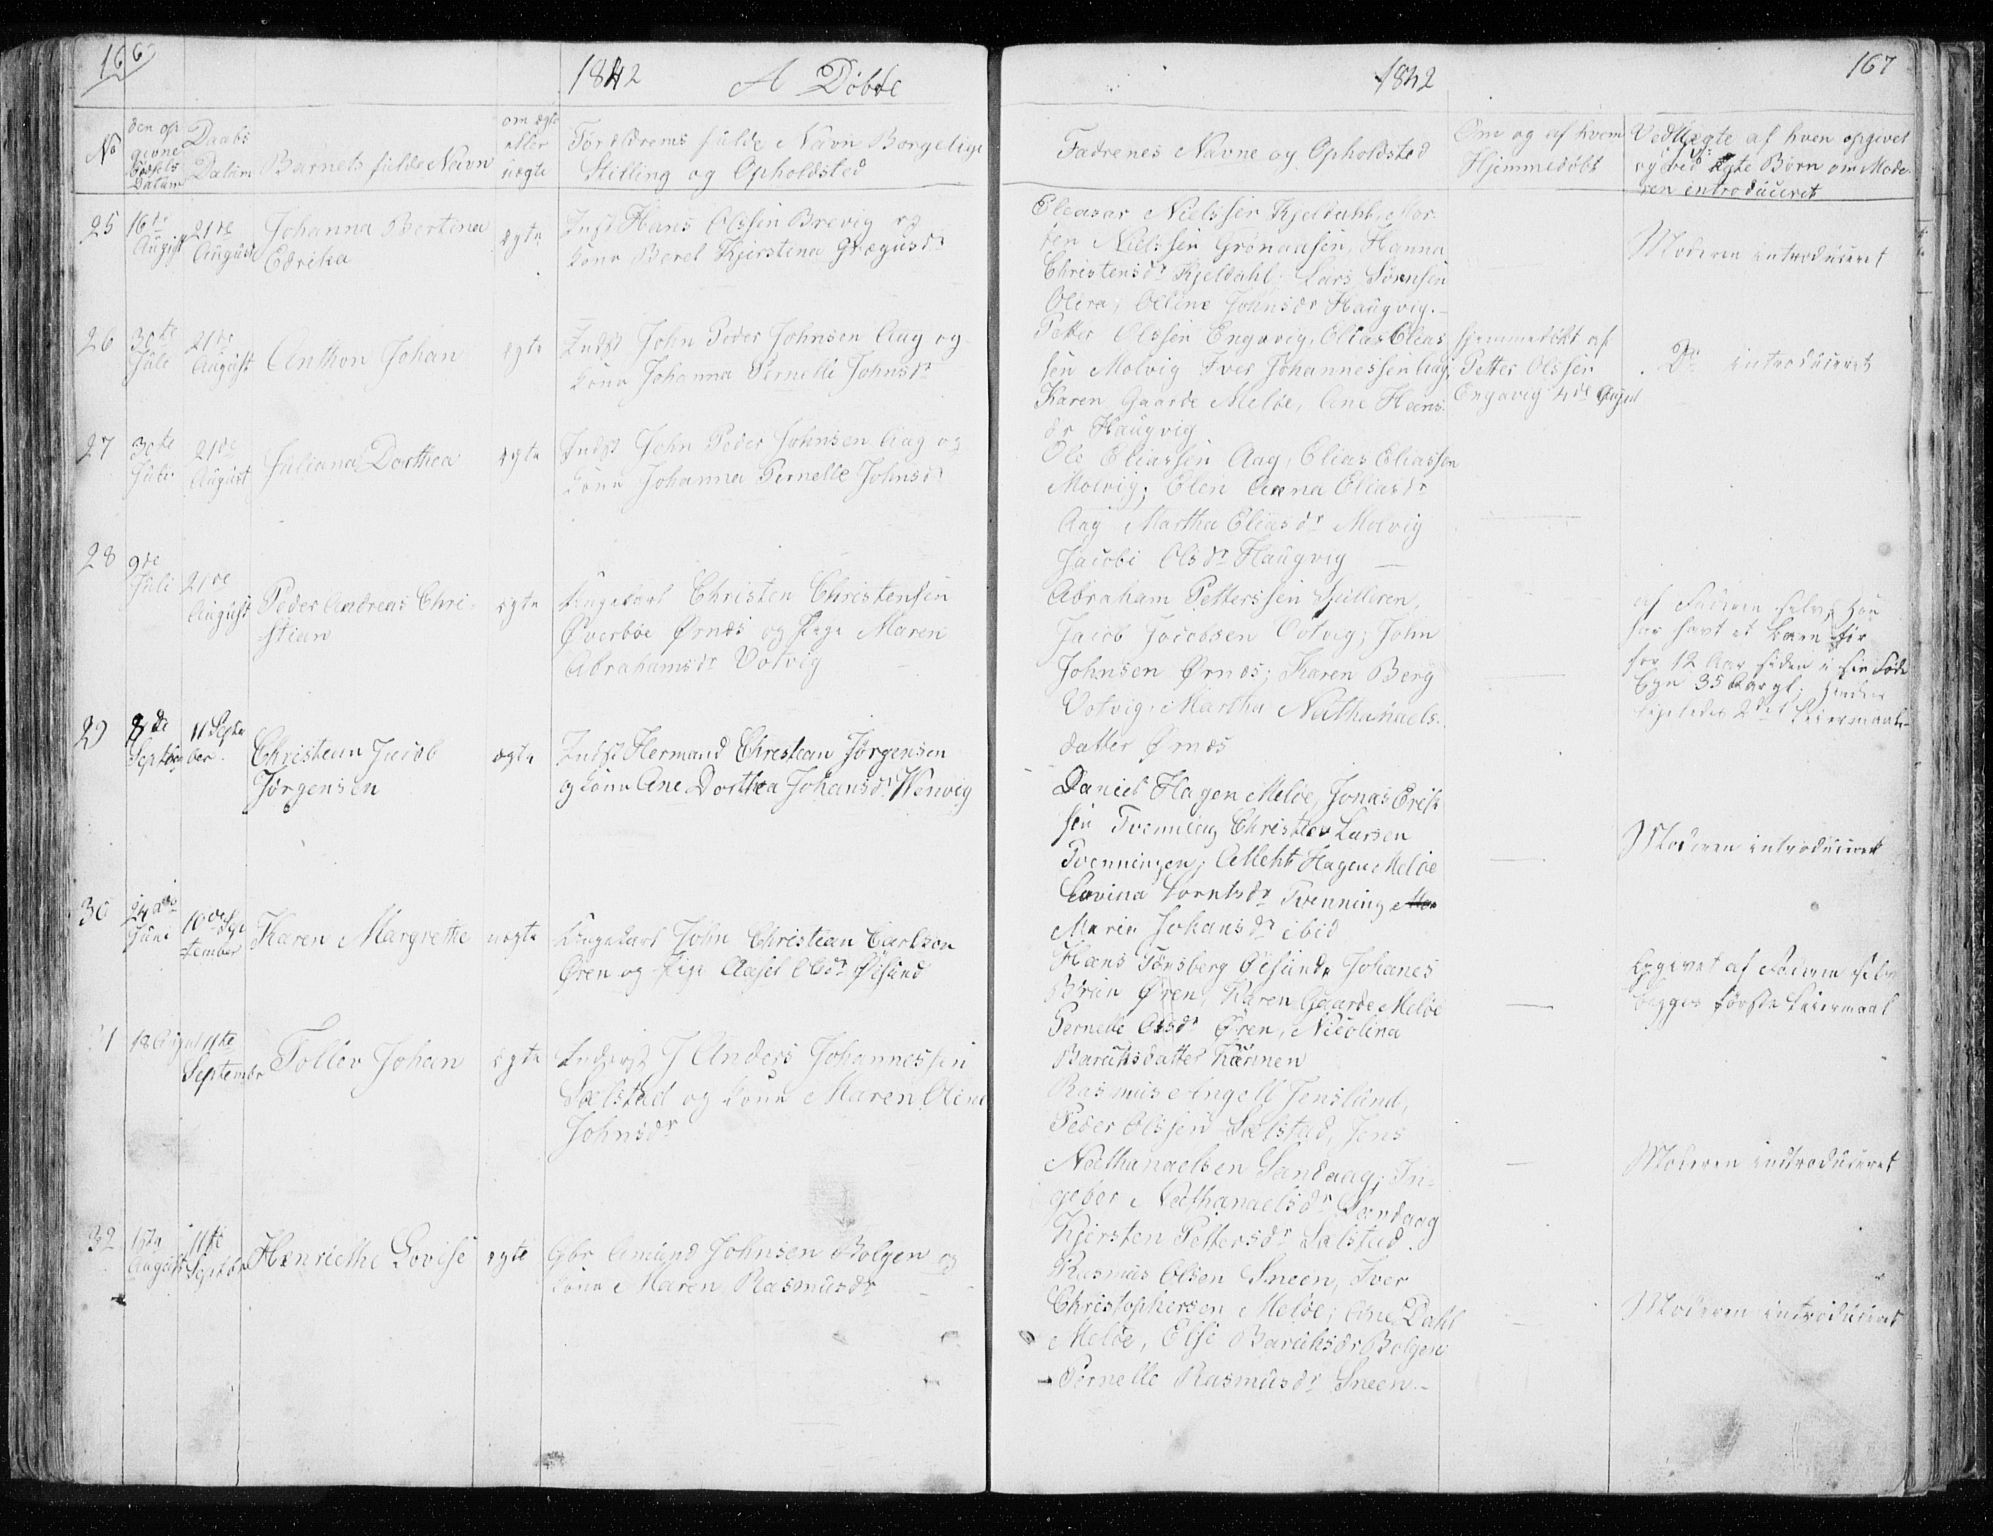 166
1842 A Døbte
No
den op
givne
Fødsels
Datum
Daabs
Datum
Barnets fulde Navn
om ægte
eller
uægte
Forældrenes fulde Navn Borgelige
Stilling og Opholdsted
25
16de
August
21de
August
Johanna Bertina
Edrika
ægte
Indst Hans Olssen Brevig og
Kone Berel Kjerstina Gregusdr
26
30te
Juli
21de
August
Anthon Johan
egte
Indst John Peder Johnsen Aag og
Kone Johanna Pernelle Johnsdr
27
30te
Juli
21de
August
Juliana Dorthea
egte
Indst John Peder Johnsen Aag og
Kone Johanna Pernelle Johnsdr
28
9de
Juli
21de
August
Peder Andreas Chri-
stian
egte
Ungekarl Christen Christensen
Øverbøe Ørnæs og Pige Maren
Abrahamsdr Votvig
29
8de
September
11 Septe
ber
Christian Jacob
Jørgensen
ægte
Indst Hermand Christian Jørgensen
og Kone Ane Dorthea Johansdr Wenvig
30
24de
Juni
10de Sep
tember
Karen Margrethe
uegte
Ungekarl John Christian Carlsen
Øren og Pige Aasel Olsdr Øisund
31
18 August
11te
September
Tollev Johan
egte
Inderst J Anders Johannessen
Selstad og Kone Maren Oline
Johnsdr
32
August
11te
Septbr
Henriethe Lovise
egte
Gbr Amund Johnsen Bolgen og
Kone Maren Rasmusdr
1842
167
Fadrenes Navne og Opholdsted
Om og af hvem
Hjemmedøbt
Ved Uægte af hvem opgivet
og ved Egte Børn om Mode-
ren introduceret
Eleasar Nielssen Kjeldahl, Mor-
ten Nielssen Grønaasen, Hanna
Christensdr Kjeldahl, Lars Sørensen
Olina, Oline Johnsdr Haugvig.
Moderen introduceret
Petter Olssen Engavig, Elias Elias
sen Molvig Iver Johannessen Aag,
Karen Gaarde Meløe, Ane Hans-
dr Haugvig
hjemmedøbt af
Petter Olssen
Engavig 4de August
Do introduceret
Ole Eliassen Aag, Elias Eliassen
Molvig; Elen Anna Eliasdr
Aag Martha Eliasdr Molvig
Jacobi Olsdr Haugvig
Abraham Petterssen
Jacob Jacobsen Votvig; John
Johnsen Ørnæs; Karen Berg
Votvig, Martha Nathanaels-
datter Ørnæs
af Faderen selv, han
har havt et Barn før
for 12 Aar siden i sin Føde
Egn 35 Aar gl;
ligeledes 2det Leiermaal
Daniel Hagen Meløe, Jonas Erik
sen Tvenning Christian Larsen
Tvenningen; Aleht Hagen Meløe
Lovina Lorntsdr Tvenning
Maria Johansdr ibid
Moderen introduceret
Hans Tønsberg Øisund, Johanes
Brun Øren, Karen Gaarde Meløe
Pernelle Olsdr Øren, Nicolina
Baruksdatter Kærmen
Opgivet af Faderen selv
begges første Leiermaal
Rasmus Angell Jenslund,
Peder Olssen Selstad, Jens
Nathanaelsen Sandaag; In-
gebor Nathanaelsdr Sandaag
Kjersten Pettersdr Selstad.
Moderen introduceret
Rasmus Olsen Sneen, Iver
Christophersen Meløe; Ane Dahl
Meløe, Else Baruksdr Bolgen
Pernelle Rasmusdr Sneen.
Moderen introduceret